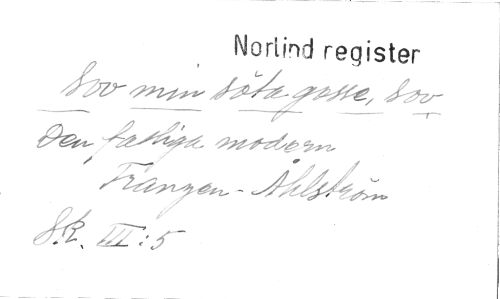 Norlind register
Sov min söta gosse, sov
Den fattiga modern
Franzen - Ahlström
Sk. III:5